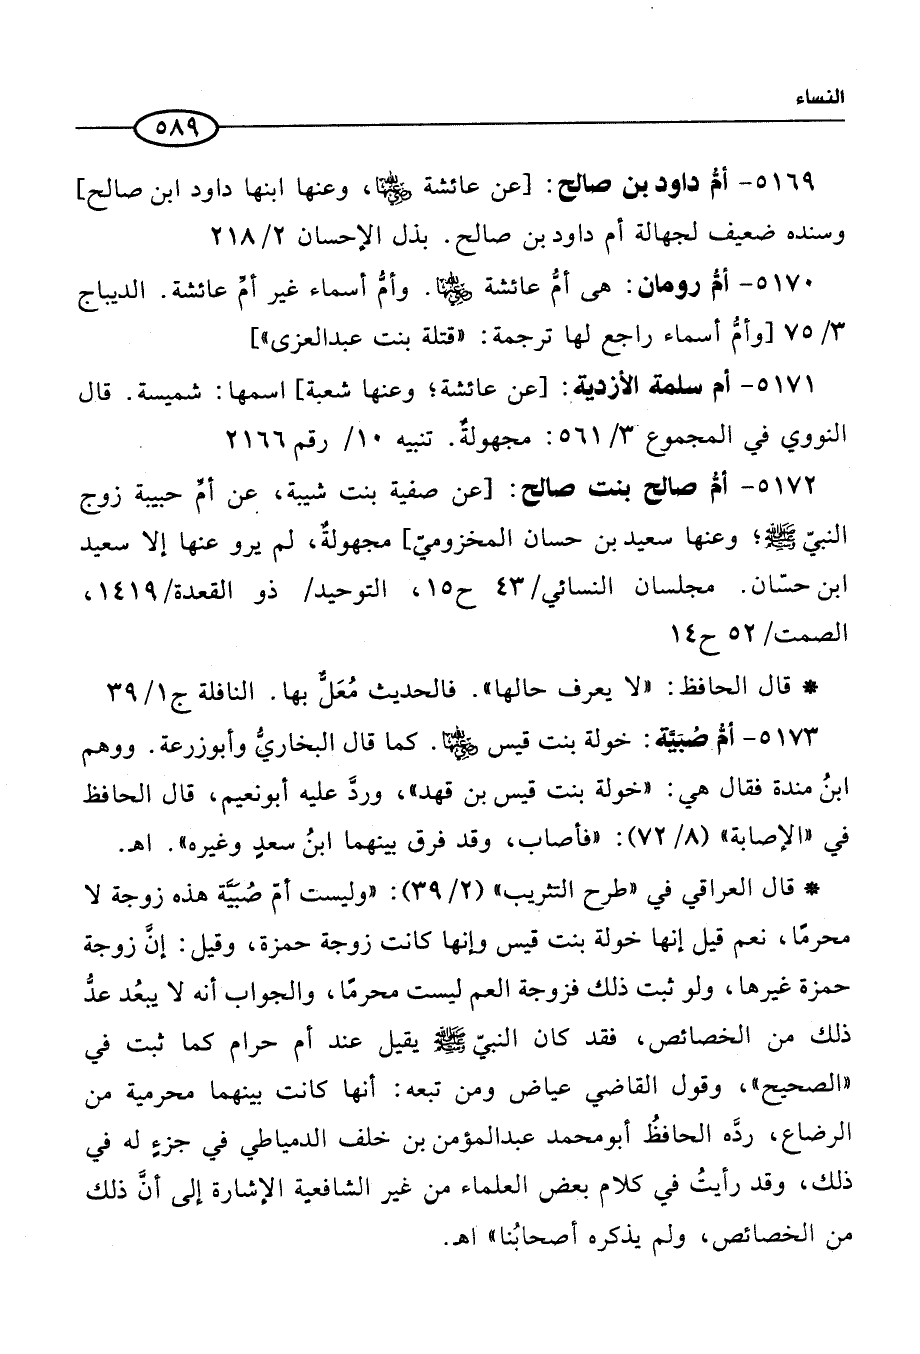 النساء
٥٨٩
٥١٦٩- أمُّ داود بن صالح: [عن عائشة ﵂، وعنها ابنها داود ابن صالح]
وسنده ضعيف لجهالة أم داود بن صالح. بذل الإحسان ٢/ ٢١٨
٥١٧٠- أمُّ رومان: هى أمُّ عائشة ﵂. وأمُّ أسماء غير أمِّ عائشة. الديباج
٣/ ٧٥ [وأمُّ أسماء راجع لها ترجمة: «قتلة بنت عبدالعزى»]
٥١٧١- أم سلمة الأزدية: [عن عائشة؛ وعنها شعبة] اسمها: شميسة. قال
النووي في المجموع ٣/ ٥٦١: مجهولةٌ. تنبيه ١٠/ رقم ٢١٦٦
٥١٧٢- أمُّ صالح بنت صالح: [عن صفية بنت شيبة، عن أمِّ حبيبة زوج
النبيّ ﷺ؛ وعنها سعيد بن حسان المخزوميّ] مجهولةٌ، لم يرو عنها إلا سعيد
ابن حسّان. مجلسان النسائي/ ٤٣ ح١٥، التوحيد/ ذو القعدة/ ١٤١٩،
الصمت/ ٥٢ ح١٤
* قال الحافظ: «لا يعرف حالها». فالحديث مُعَلٌّ بها. النافلة ج١/ ٣٩
٥١٧٣- أمُّ صُبَيَّة: خولة بنت قيس ﵂. كما قال البخاريُّ وأبوزرعة. ووهم
ابنُ مندة فقال هي: «خولة بنت قيس بن قهد»، وردَّ عليه أبونعيم، قال الحافظ
في «الإصابة» (٨/ ٧٢): «فأصاب، وقد فرق بينهما ابنُ سعدٍ وغيره». اهـ.
* قال العراقي في «طرح التثريب» (٢/ ٣٩): «وليست أمّ صُبَيَّة هذه زوجة لا
محرمًا، نعم قيل إنها خولة بنت قيس وإنها كانت زوجة حمزة، وقيل: إنَّ زوجة
حمزة غيرها، ولو ثبت ذلك فزوجة العم ليست محرمًا، والجواب أنه لا يبعُد عدُّ
ذلك من الخصائص، فقد كان النبيّ ﷺ يقيل عند أم حرام كما ثبت في
«الصحيح»، وقول القاضي عياض ومن تبعه: أنها كانت بينهما محرمية من
الرضاع، ردَّه الحافظُ أبومحمد عبدالمؤمن بن خلف الدمياطي في جزءٍ له في
ذلك، وقد رأيتُ في كلام بعض العلماء من غير الشافعية الإشارة إلى أنَّ ذلك
من الخصائص، ولم يذكره أصحابُنا» اهـ.